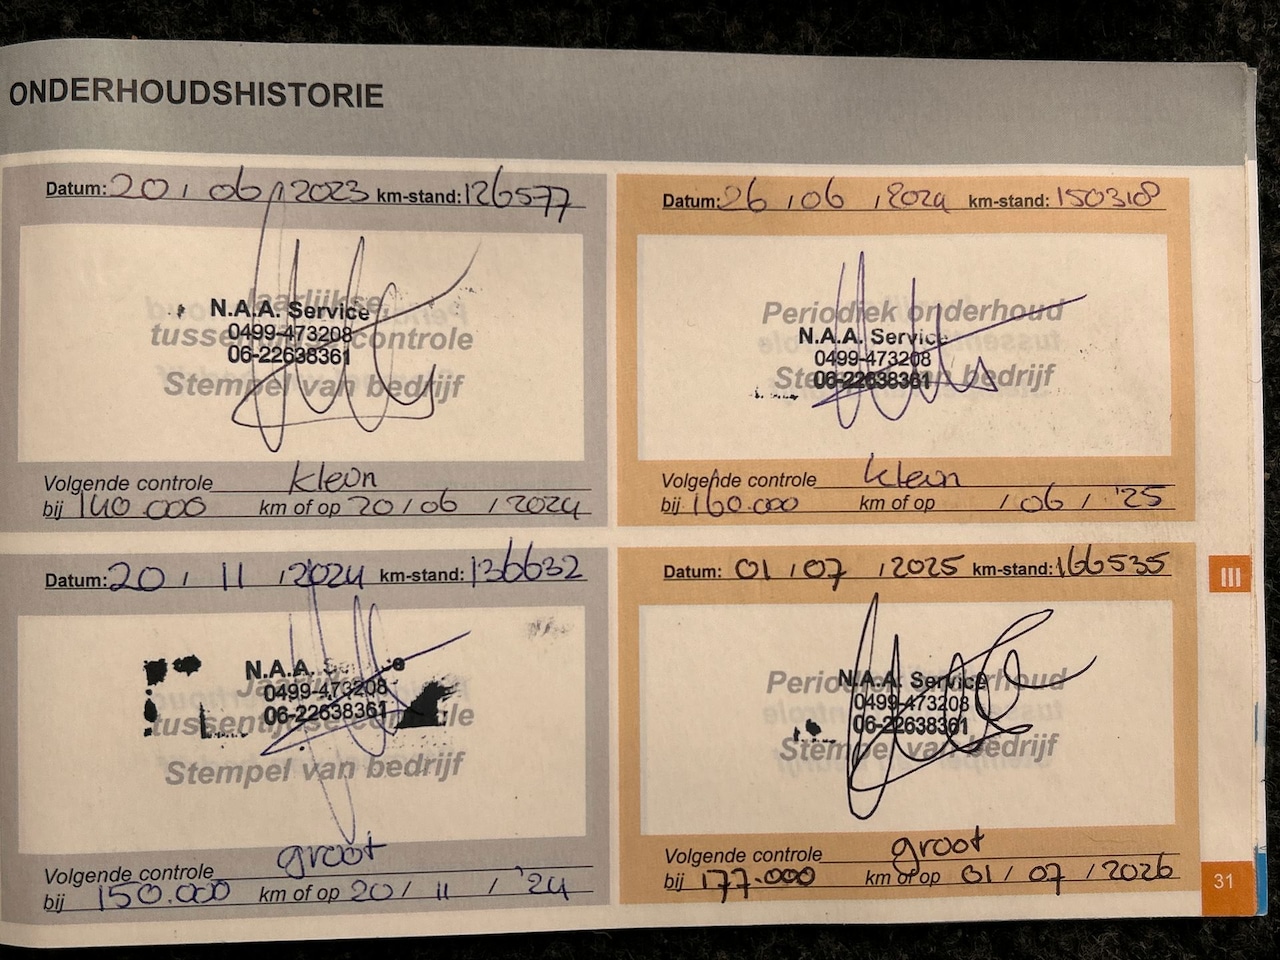 ONDERHOUDSHISTORIE
Datum: 20 / 06 / 2023 km-stand: 126577
Jaarlijkse
N.A.A. Service
tussentijdse controle
0499-473208
06-22638361
Stempel van bedrijf
Volgende controle klein
bij 140 000 km of op 20 / 06 / 2024
Datum: 26 / 06 / 2024 km-stand: 150318
Periodiek onderhoud
N.A.A. Service
0499-473208
Stempel van bedrijf
06-22638361
Volgende controle klein
bij 160.000 km of op / 06 / '25
Datum: 20 / 11 / 2024 km-stand: 136632
N.A.A. Service
Jaarlijkse
0499-473208
06-22638361
tussentijdse controle
Stempel van bedrijf
Volgende controle groot
bij 150.000 km of op 20 / 11 / '24
Datum: 01 / 07 / 2025 km-stand: 166535
Periodiek onderhoud
N.A.A. Service
0499-473208
06-22638361
Stempel van bedrijf
Volgende controle groot
bij 177.000 km of op 01 / 07 / 2026
III
31